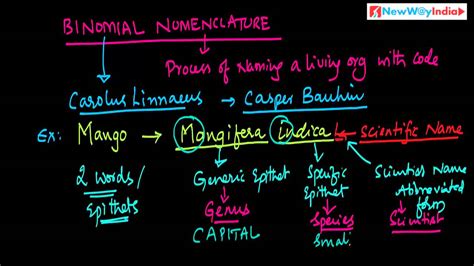 NewW@yIndia
BINOMIAL NOMENCLATURE
Process of Naming a living org with code
Carolus Linnaeus → Casper Bauhin
Ex: Mango → Mangifera indica L. ← Scientific Name
2 words/ Epithets
Generic Epithet
Genus
CAPITAL
Specific Epithet
Species
Small.
Scientist Name Abbreviated form
Scientist